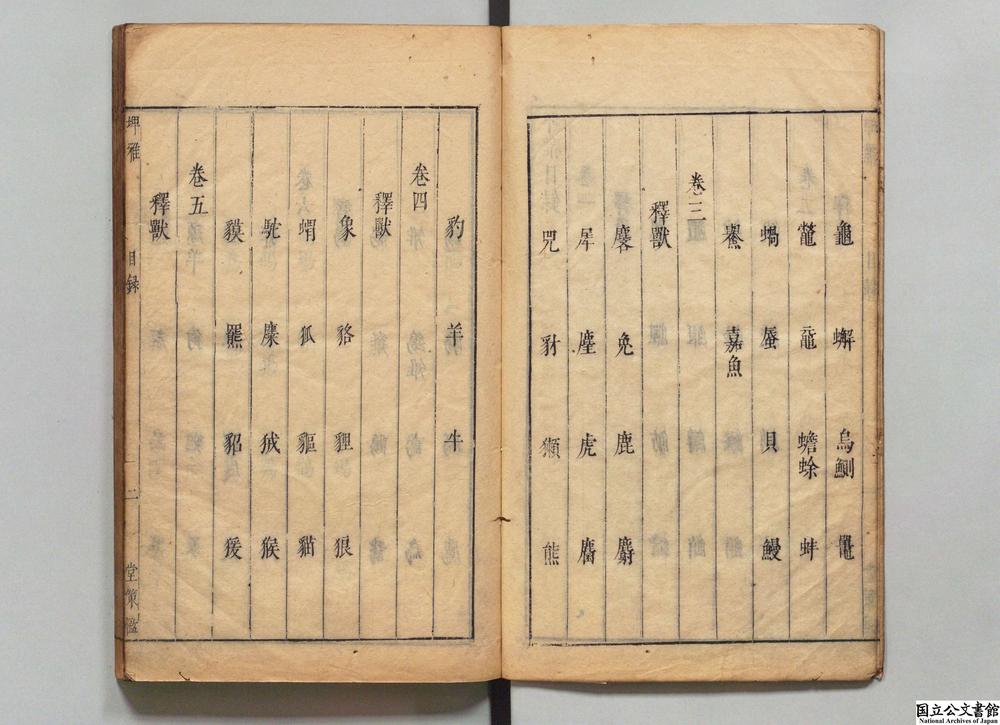 龜 蠏 烏鰂 鼉
鼈 黿 蟾蜍 蚌
蝸 蜃 貝 鰻
鱟 嘉魚
卷三
釋獸
麐 兔 鹿 麝
犀 麈 虎 麕
兕 豺 獺 熊
豹 羊 牛
卷四
釋獸
象 貉 貍 狼
蝟 狐 貙 貓
駝 麋 狨 猴
貘 羆 貂 猨
卷五
釋獸
埤雅 目録 二 堂策檻
国立公文書館
National Archives of Japan